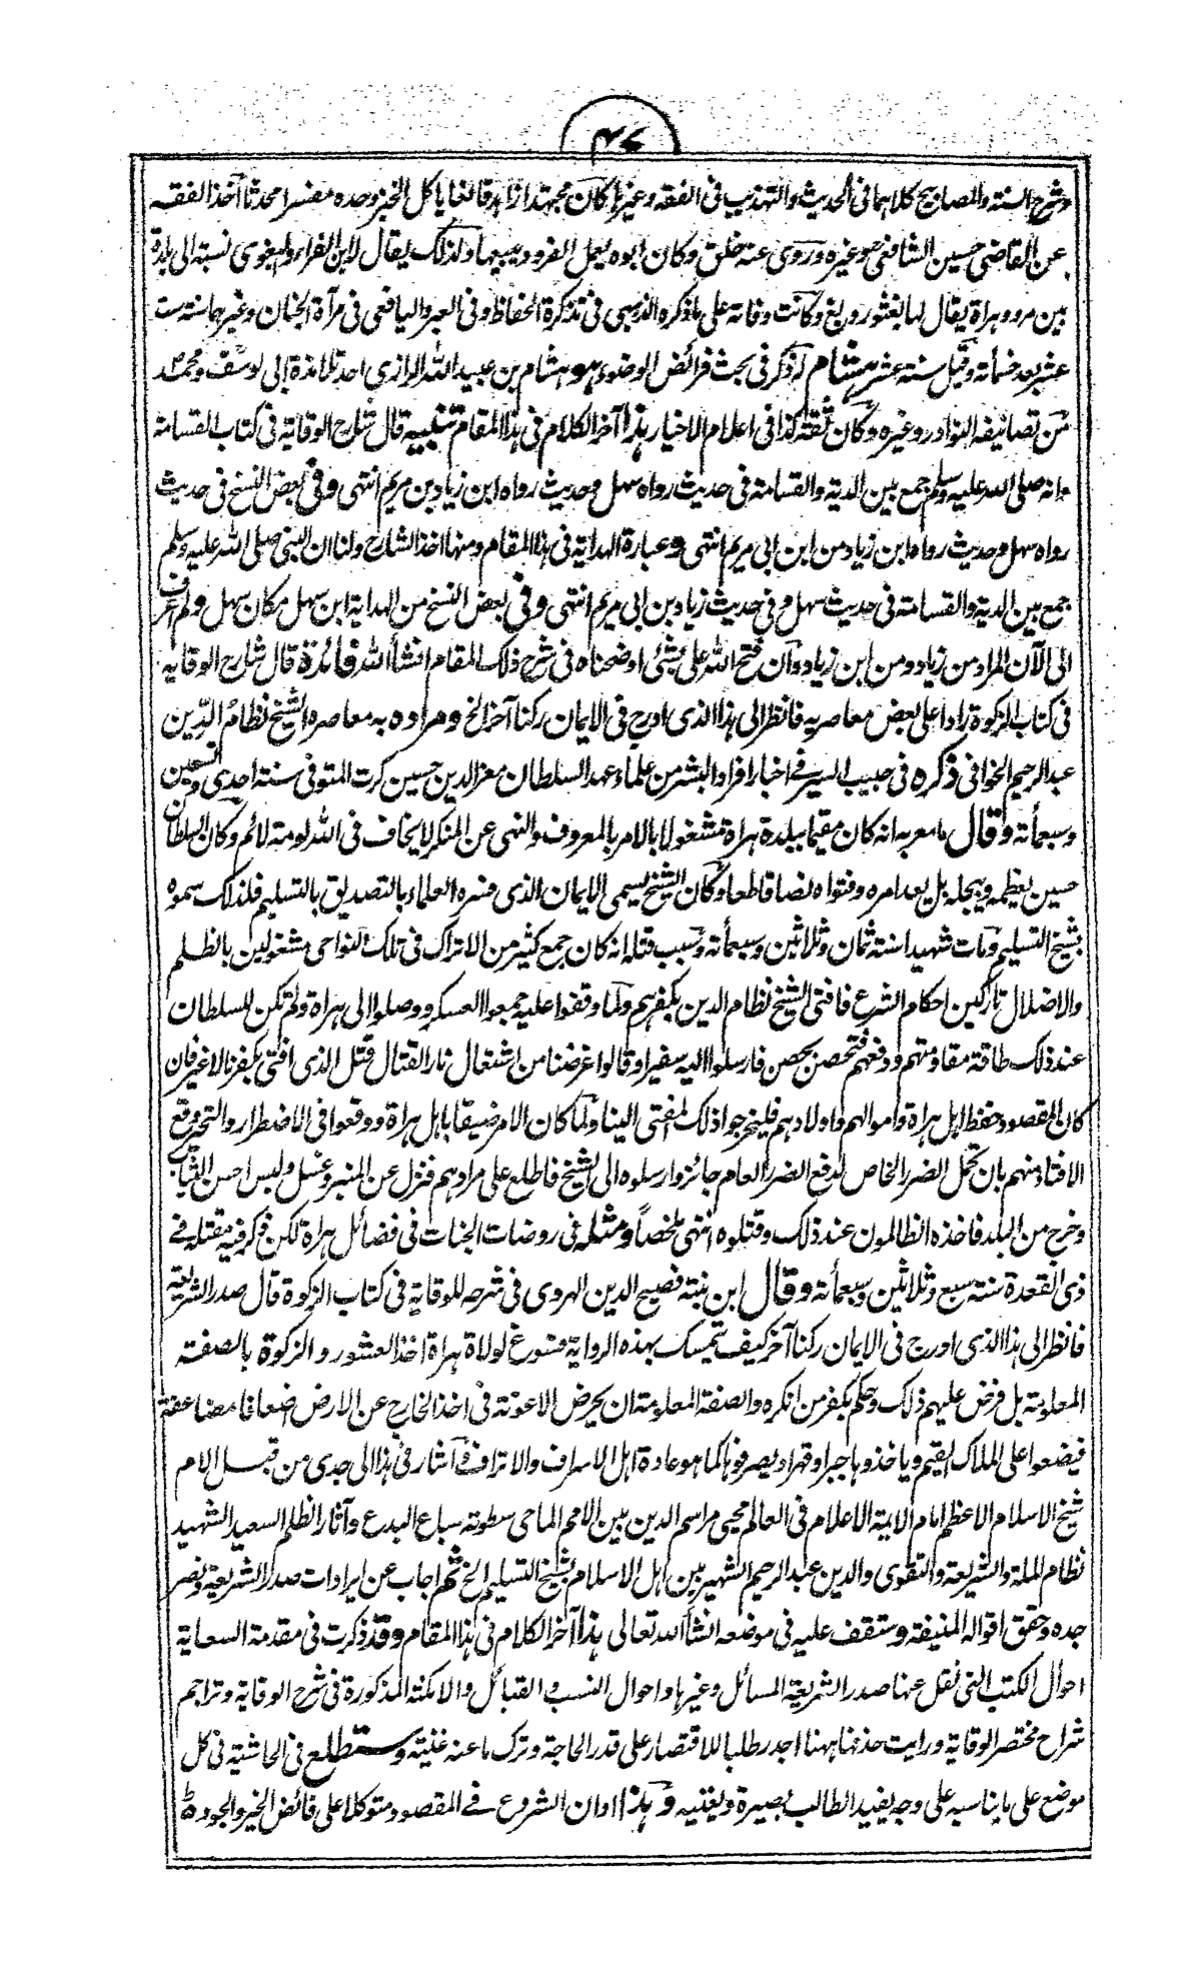 ۴۷
وشرح السنة والمصابيح كلاهما فى الحديث والتهذيب فى الفقه وغيرها كان مجتهدا زاهدا قانعا ياكل الخبز وحده مفسرا محدثا اخذ الفقه
عن القاضى حسين الشافعى وغيره وروى عنه خلق وكان ابوه يعمل الفرو ويبيعها ولذلك يقال لابن الفراء والبغوى نسبة الى بلدة
بين مرو وهراة يقال لها بغشور وبغ وكانت وفاته على ما ذكره الذهبى فى تذكرة الحفاظ وفى العبر واليافعى فى مرآة الجنان وغيرهما سنة ست
عشر بعد خمسمائة وقيل سنة عشر هشام له ذكر فى بحث فرائض الوضوء هو هشام بن عبيد الله الرازى احد تلامذة ابى يوسف ومحمد
من تصانيفه النوادر وغيره وكان ثقة كذا فى اعلام الاخيار هذا آخر الكلام فى هذا المقام تنبيه قال شارح الوقاية فى كتاب القسامة
انه صلى الله عليه وسلم جمع بين الدية والقسامة فى حديث رواه سهل وحديث رواه ابن زياد بن مريم انتهى وفى بعض النسخ فى حديث
رواه سهل وحديث رواه ابن زياد من ابن ابى مريم انتهى وعبارة الهداية فى هذا المقام ومنها اخذ الشارح ولنا ان النبى صلى الله عليه وسلم
جمع بين الدية والقسامة فى حديث سهل وفى حديث زياد بن ابى مريم انتهى وفى بعض النسخ من الهداية ابن سهل مكان سهل ولم اعرف
الى الآن المراد من زياد ومن ابن زياد وان فتح الله على بشئ اوضحناه فى شرح ذلك المقام انشأ الله فائدة قال شارح الوقاية
فى كتاب الزكوة رادا على بعض معاصريه فانظر الى هذا الذى ادرج فى الايمان ركنا آخر الخ ومراده به معاصره الشيخ نظام الدين
عبد الرحيم الخوافى ذكره فى حبيب السير فے اخبار افراد البشر من علماء عهد السلطان معز الدين حسين كرت المتوفى سنة احدى وسبعين
وسبعمأته وقال ما معربه انه كان مقيما ببلدة هراة مشغولا بالامر بالمعروف والنهى عن المنكر لا يخاف فى الله لومة لائم وكان السلطان
حسين يعظمه ويبجله بل يعد امره وفتواه نصا قاطعا وكان الشيخ يسمى الايمان الذى فسره العلماء بالتصديق بالتسليم فلذلك سموه
بشيخ التسليم ومات شهيدا سنة ثمان وثلاثين وسبعمأته وسبب قتله انه كان جمع كثير من الاتراك فى تلك النواحى مشغولين بالظلم
والاضلال تاركين احكام الشرع فافتى الشيخ نظام الدين بكفرهم ولما وقفوا عليه جمعوا العسكر ووصلوا الى هراة ولم تكن للسلطان
عند ذلك طاقة مقاومتهم ودفعهم فتحصن بحصن فارسلوا اليه سفيرا وقالوا غرضنا من اشتعال نار القتال قتل الذى افتى بكفرنا لا غير فان
كان المقصود حفظ اهل هراة واموالهم واولادهم فليخرجوا ذلك المفتى الينا ولما كان الامر ضيقا باهل هراة ووقعوا فى الاضطرار والتحير وقع
الافتاء منهم بان تحمل الضرر الخاص لدفع الضرر العام جائز وارسلوه الى الشيخ فاطلع على مرادهم فنزل عن المنبر وغسل ولبس احسن الثياب
وخرج من البلد فاخذه الظالمون عند ذلك وقتلوه انتهى ملخصاً ومثله فى روضات الجنات فى فضائل هراة لكن ذكر فيه مقتله فے
ذى القعدة سنة سبع وثلاثين وسبعمأته وقال ابن بنته فصيح الدين الهروى فى شرحه للوقاية فى كتاب الزكوة قال صدر الشريعة
فانظر الى هذا الذى ادرج فى الايمان ركنا آخر كيف تمسك بهذه الرواية فسوغ لولاة هراة اخذ العشور والزكوة بالصفة
المعلومة بل فرض عليهم ذلك وحكم بكفر من انكره والصفة المعلومة ان يحرض الاعونة فى اخذ الخارج عن الارض اضعافا مضاعفة
فيضعوا على الملاك القيم وياخذوها جبرا وقهرا ويصرفوها كما هو عادة اهل الاسراف والاتراف اشار فى هذا الى جدى من قبل الام
شيخ الاسلام الاعظم امام الايمة الاعلام فى العالم محيى مراسم الدين بين الامم الماحى سطوته سباع البدع وآثار الظلم السعيد الشهيد
نظام الملة والشريعة والتقوى والدين عبد الرحيم الشهير بين اهل الاسلام بشيخ التسليم الخ ثم اجاب عن ايرادات صدر الشريعة ونصر
جده وحقق اقواله المنيفة وستقف عليه فى موضعه انشأ الله تعالى هذا آخر الكلام فى هذا المقام وقد ذكرت فى مقدمة السعاية
احوال الكتب التى نقل عنها صدر الشريعة المسائل وغيرها واحوال النسب والقبائل والامكنة المذكورة فى شرح الوقاية وتراجم
شراح مختصر الوقاية ورايت حذفها ههنا اجدر طلبا للاقتصار على قدر الحاجة وترك ما عنه غنية وستطلع فى الحاشية فى كل
موضع على ما يناسبه على وجه يفيد الطالب بصيرة ويغنيه وهذا اوان الشروع فے المقصود متوكلا على فائض الخير والجود